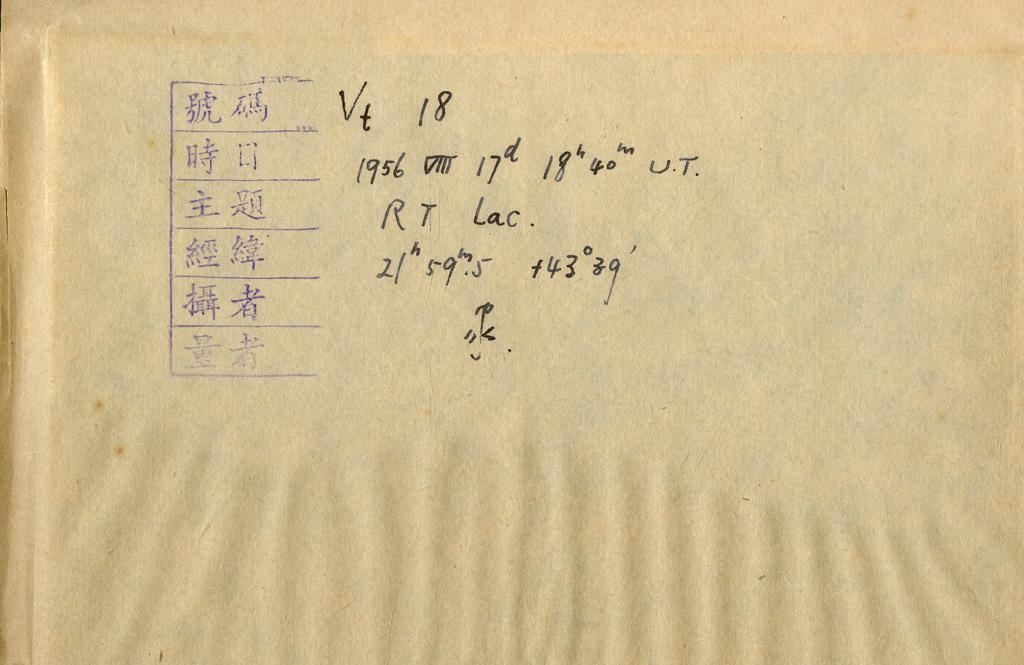 號碼 Vt 18
時日 1956 VIII 17ᵈ 18ʰ40ᵐ U.T.
主題 RT Lac.
經緯 21ʰ59ᵐ.5 +43°39′
攝者
量者